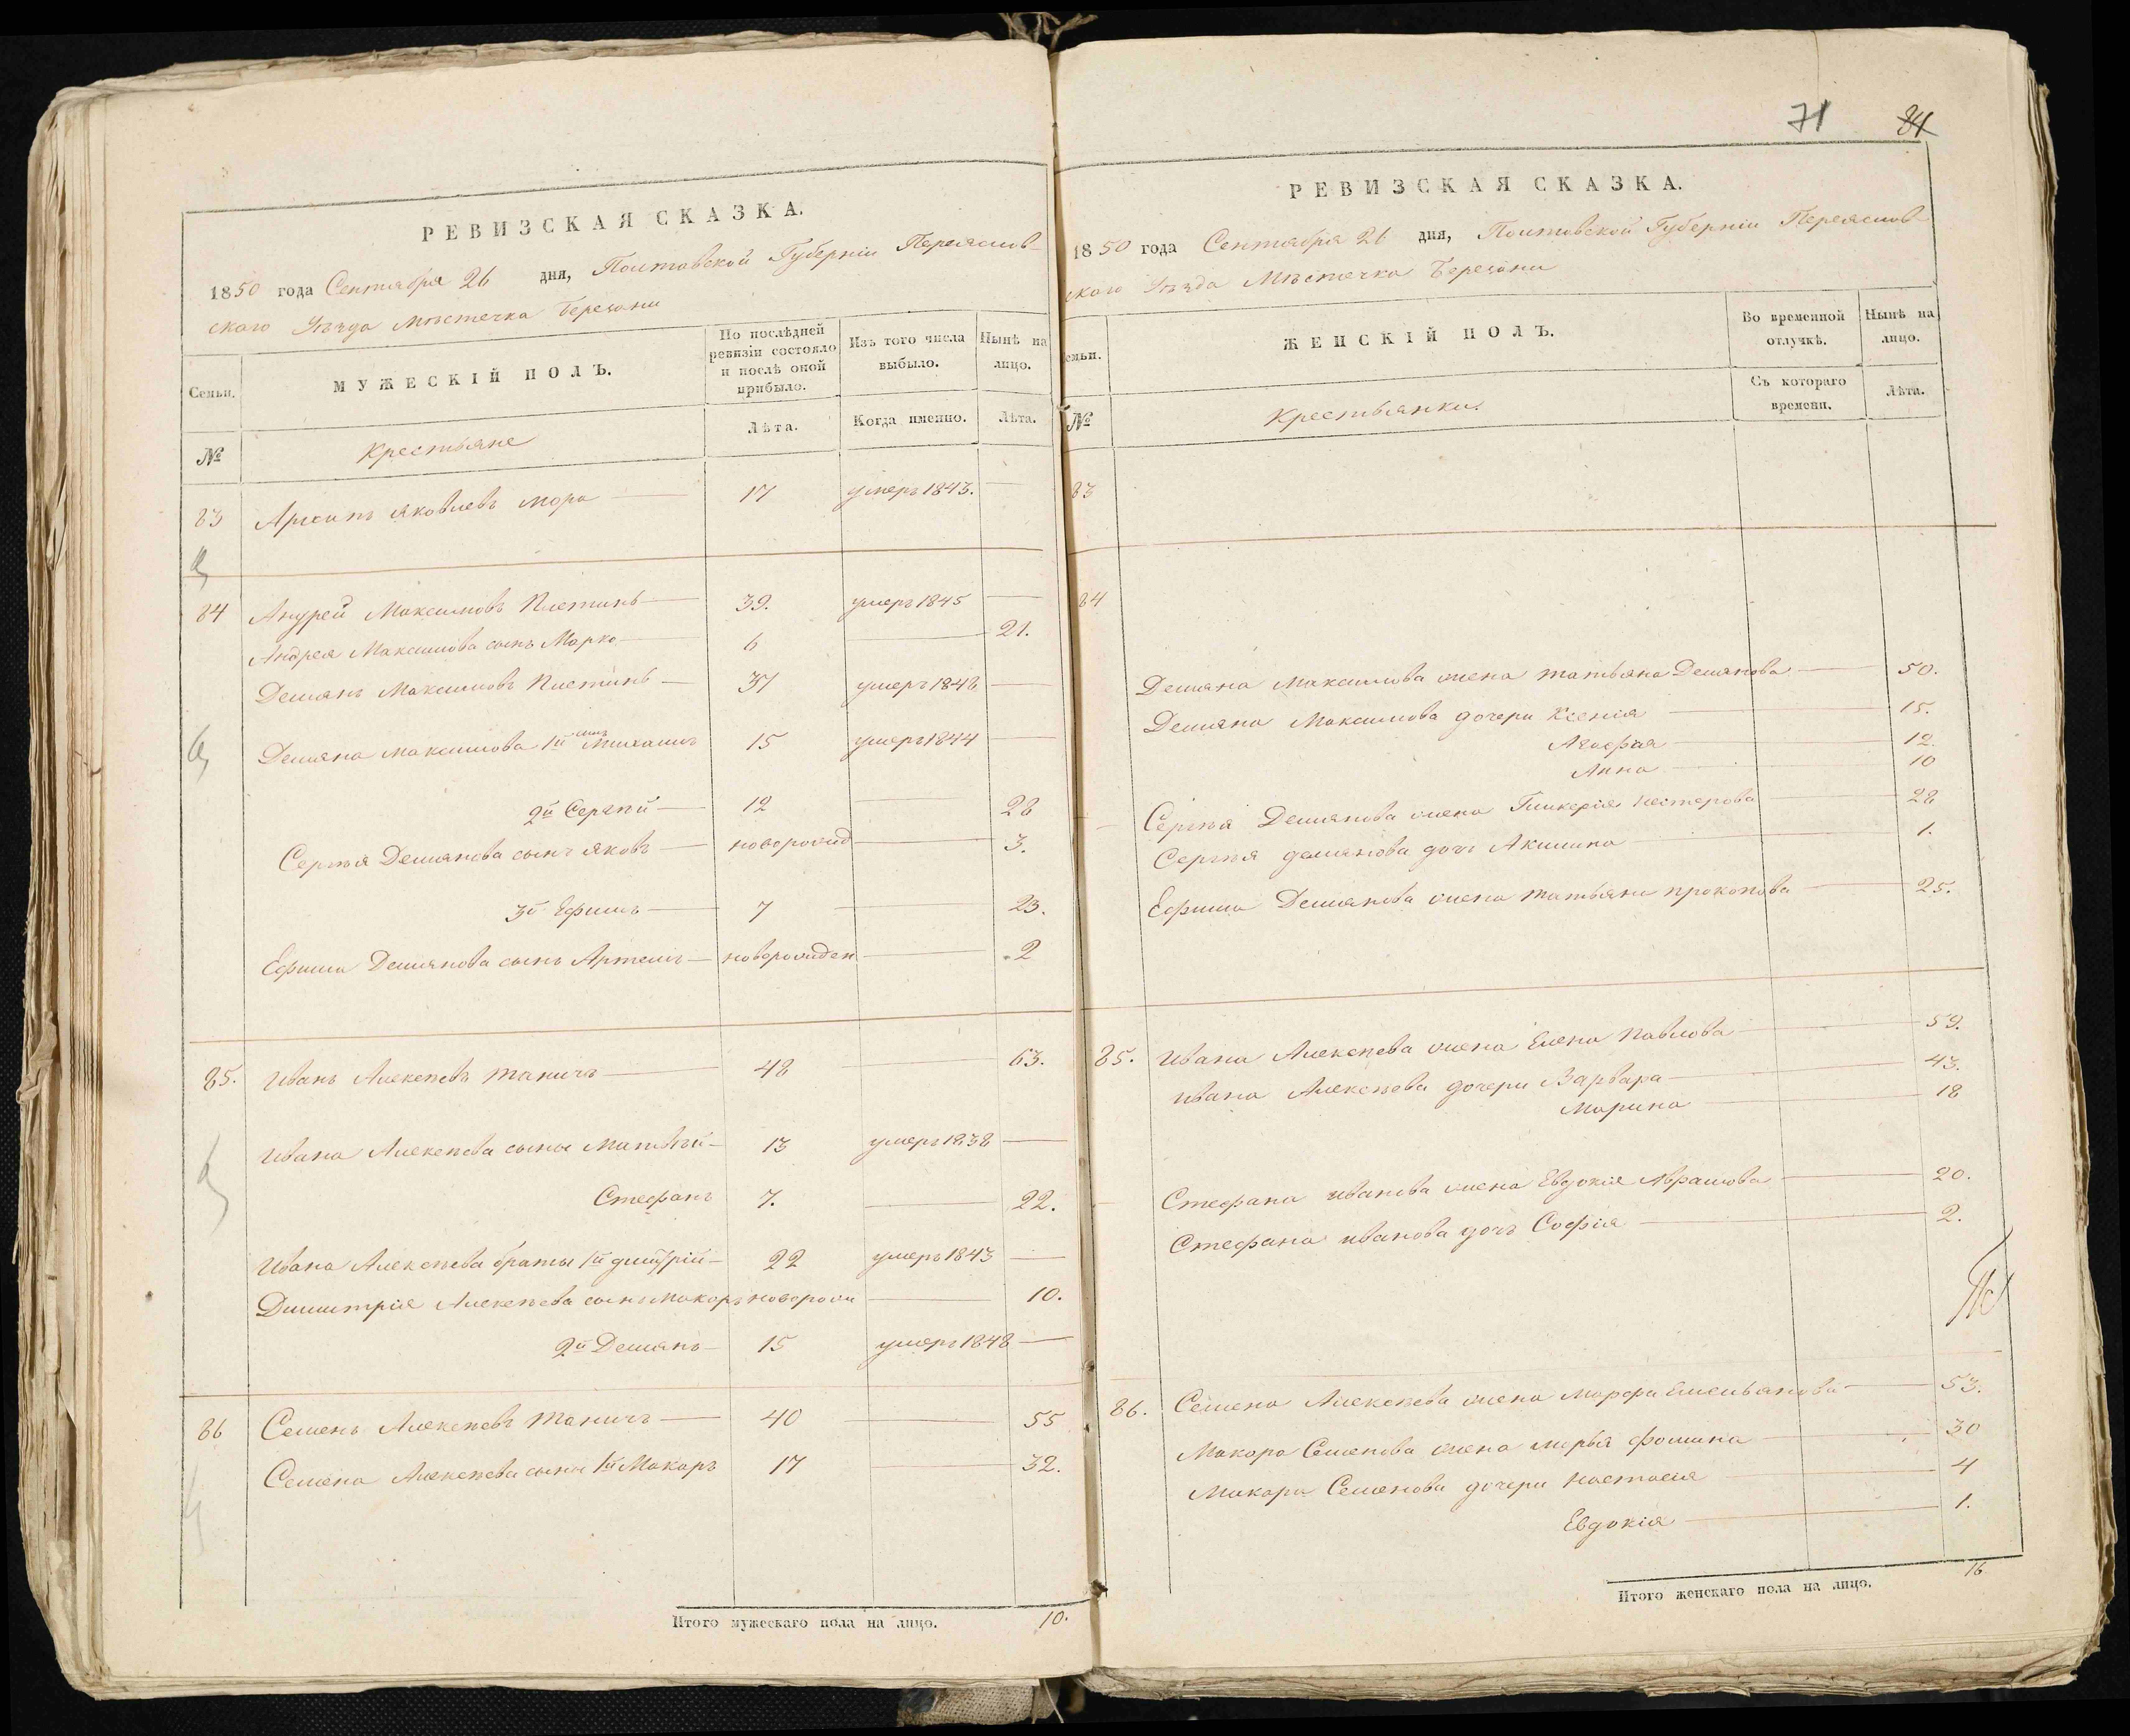 РЕВИЗСКАЯ СКАЗКА.
1850 года Сентября 26 дня, Полтавской Губерніи Переяслов-
ского Уѣзда мѣстечка Березани
Семьи. МУЖЕСКІЙ ПОЛЪ. По послѣдней ревизіи состояло и послѣ оной прибыло. Изъ того числа выбыло. Нынѣ на лицо.
№ Крестьяне Лѣта. Когда именно. Лѣта.
83 Архипъ яковлевъ мора 17 умеръ 1843.
84 Андрей Максимовъ 39. умеръ 1845
Андрея Максимова сынъ Марко 6 21.
Демянъ Максимовъ 37 умеръ 1848
Демяна максимова 1й сынъ Михаилъ 15 умеръ 1844
2й Сергѣй 12 28
Сергѣя Демянова сынъ яковъ новорожд 3.
3й Ефимъ 7 23.
Ефима Демянова сынъ Артемъ новорожден 2
85. Иванъ Алексѣевъ 48 63.
Ивана Алексѣева сыны Матвѣй 13 умеръ 1838
Стефанъ 7. 22.
Ивана Алексѣева браты 1й дмитрій 22 умеръ 1843
Димитрія Алексѣева сынъ Макаръ новорожд 10.
2й Демянъ 15 умеръ 1848
86 Семенъ Алексѣевъ 40 55
Семена Алексѣева сыны 1й Макаръ 17 32.
Итого мужескаго пола на лицо. 10.
71 84
РЕВИЗСКАЯ СКАЗКА.
1850 года Сентября 26 дня, Полтавской Губерніи Переяслов-
ского Уѣзда Мѣстечка Березани
семьи. ЖЕНСКІЙ ПОЛЪ. Во временной отлучкѣ. Нынѣ на лицо.
№ Крестьянки. Съ котораго времени. Лѣта.
83
84
Демяна максимова жена татьяна Демянова 50.
Демяна Максимова дочери Ксенія 15.
Агафія 12.
Анна 10
Сергѣя Демянова жена Гликерія нестерова 28
Сергѣя демянова дочь Акилина 1.
Ефима Демянова жена татьяна прокопова 25.
85. Ивана Алексѣева жена Елена павлова 59.
ивана Алексѣева дочери Варвара 43.
Марина 18
Стефана иванова жена Евдокія Аврамова 20.
Стефана иванова дочь Софія 2.
86. Семена Алексѣева жена Марфа Емельянова 53.
Макара Семенова жена марья фомина 30
Макара Семенова дочери настасія 4
Евдокія 1.
Итого женскаго пола на лицо. 16